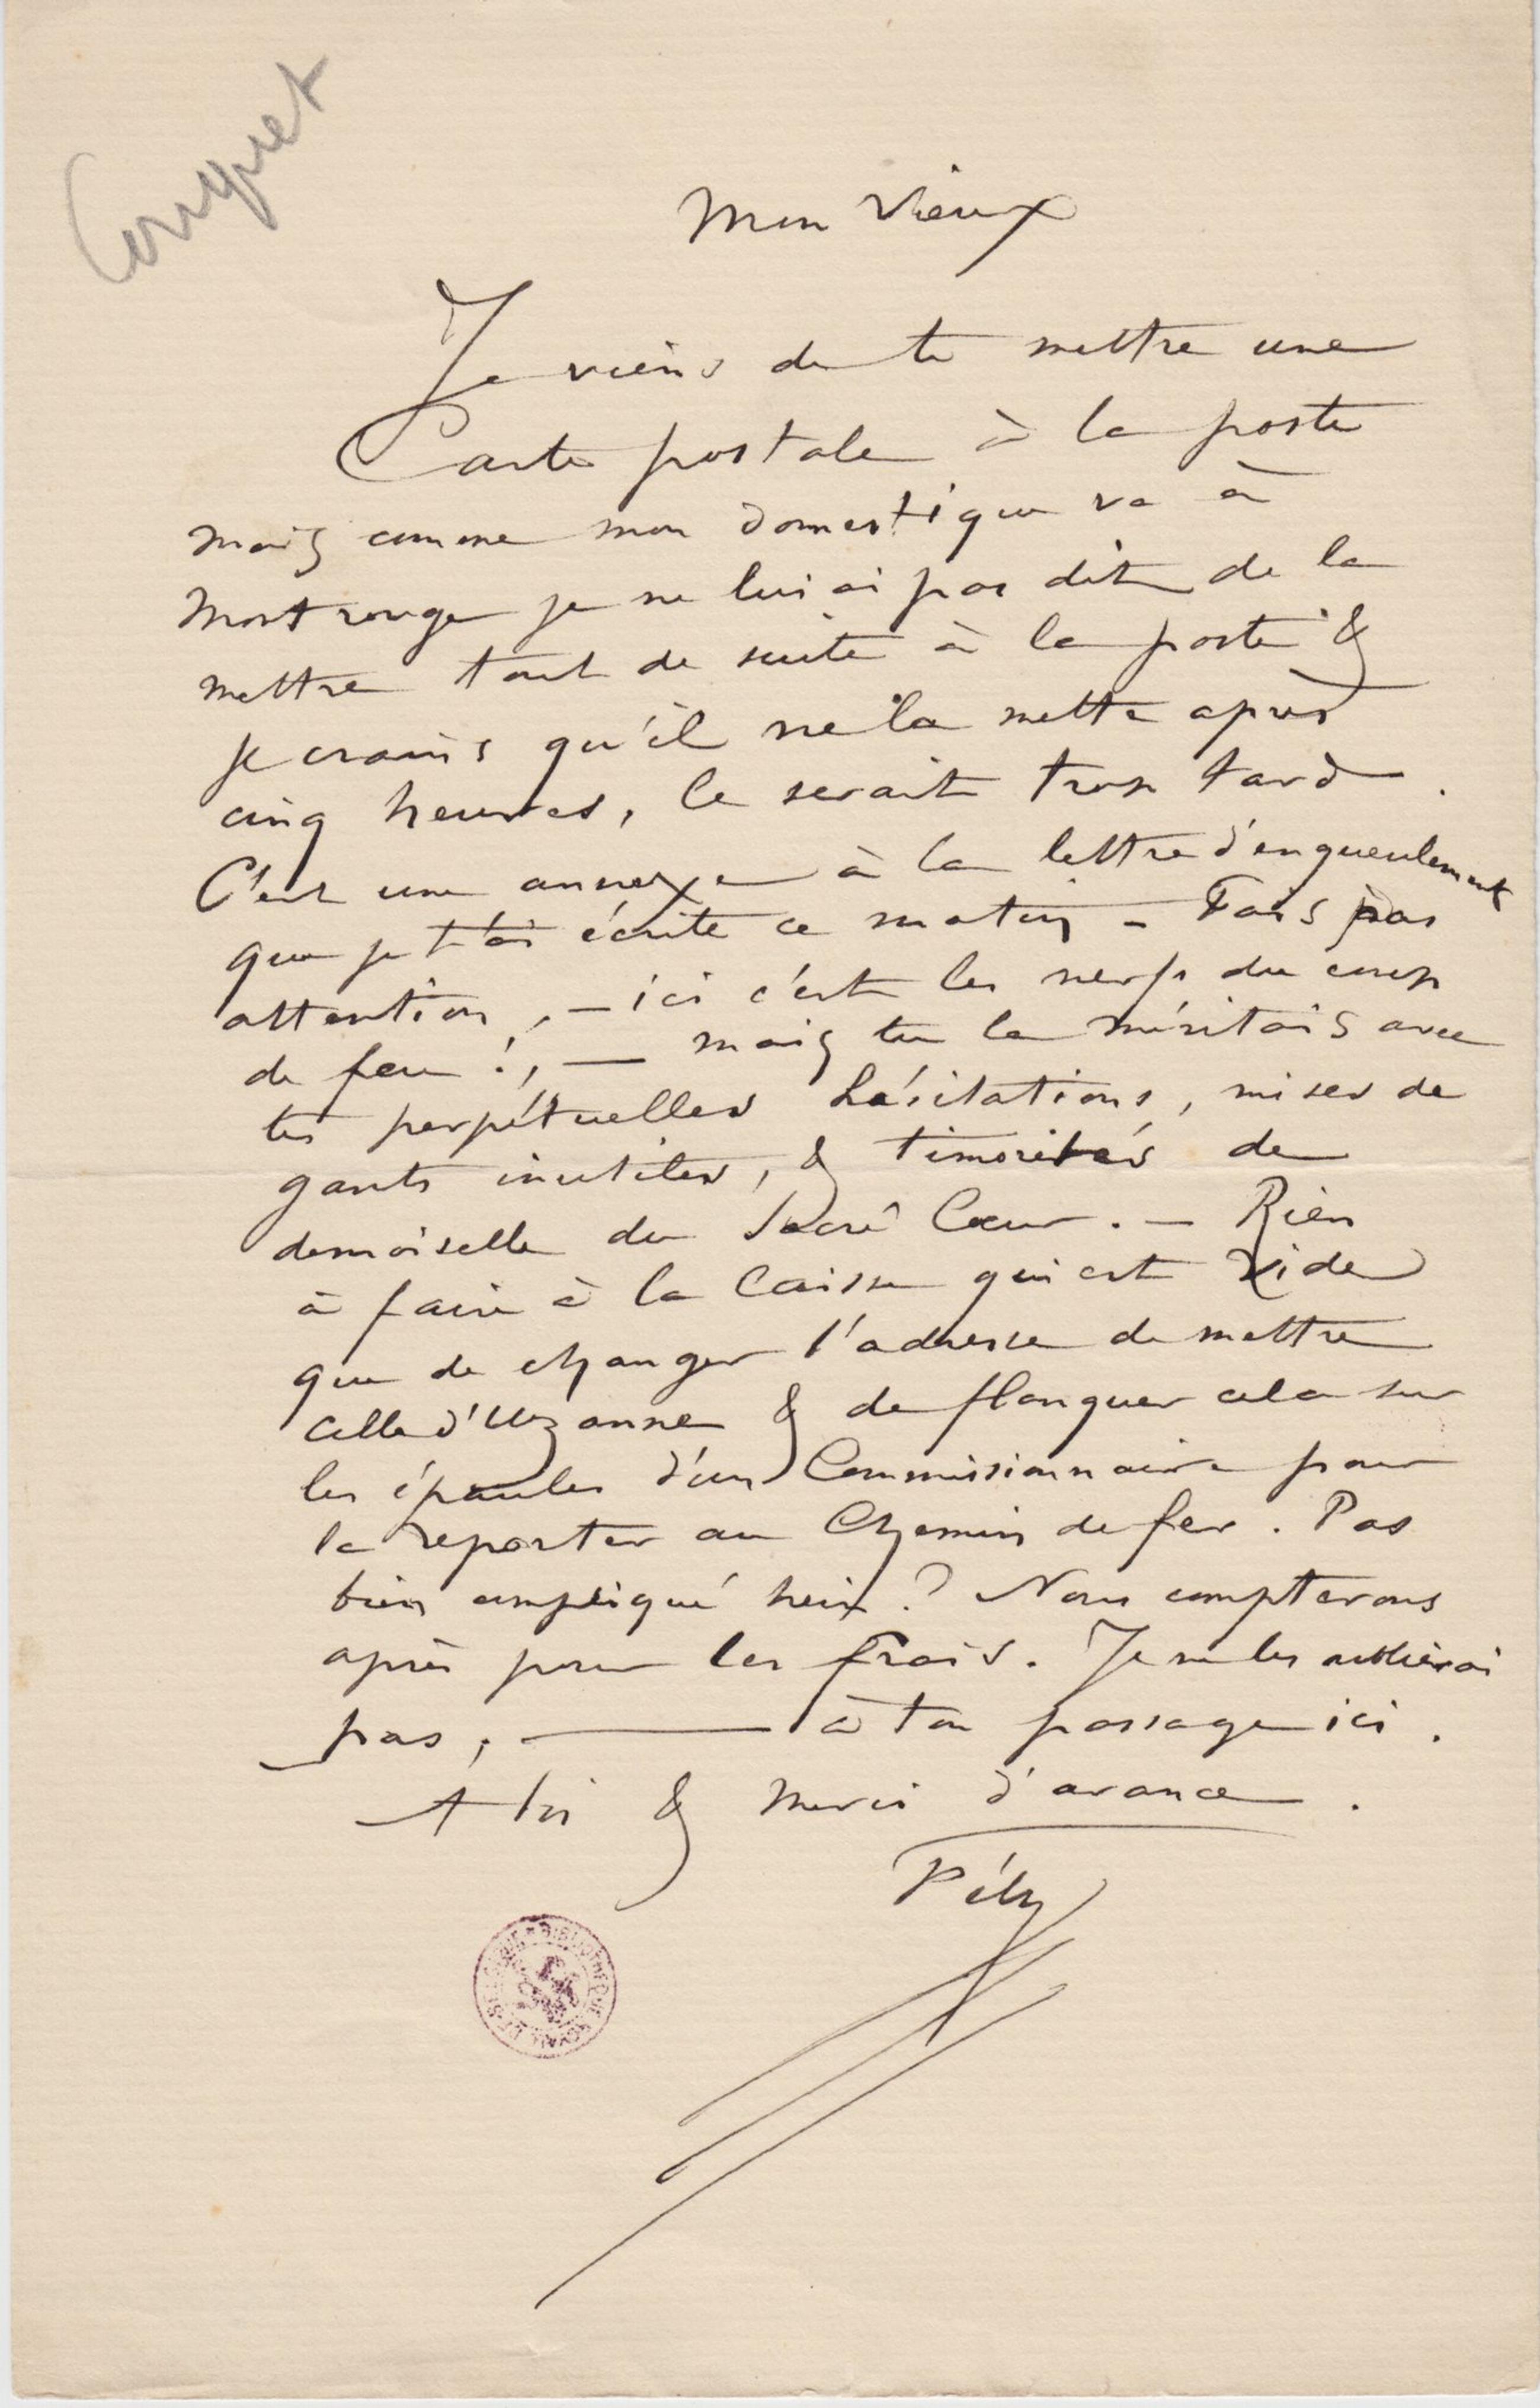 Conquet
Mon Vieux
Je viens de te mettre une
Carte postale à la poste
mais comme mon domestique va à
Montrouge je ne lui ai pas dit de la
mettre tout de suite à la poste &
je crains qu'il ne la mette après
cinq heures, ce serait trop tard.
C'est une annexe à la lettre d'engueulement
que je t'ai écrite ce matin – Fais pas
attention, – ici c'est les nerfs du coup
de feu !, — mais tu la méritais avec
tes perpétuelles hésitations, mises de
gants inutiles, & timorités de
demoiselle du Sacré Cœur. — Rien
à faire à la Caisse qui est vide
que de changer l'adresse de mettre
celle d'Uzanne & de flanquer cela sur
les épaules d'un Commissionnaire pour
la reporter au Chemin de fer. Pas
bien compliqué hein ? Nous compterons
après pour les frais. Je ne les oublierai
pas, ——— à ton passage ici.
A toi & merci d'avance.
Fély